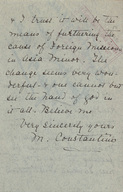 & I trust it will be the
means of furthering the
cause of Foreign Missions
in Asia Minor. The
change seems very won-
derful - & one cannot but
see the hand of God in
it all. Believe me
Very sincerely yours
M. Constantine